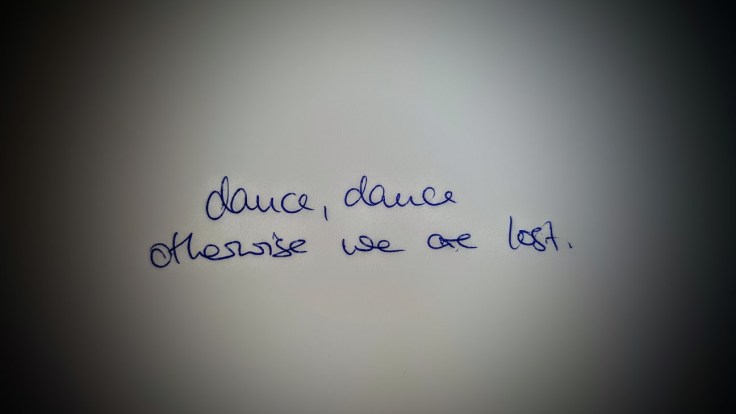 dance, dance
otherwise we are lost.